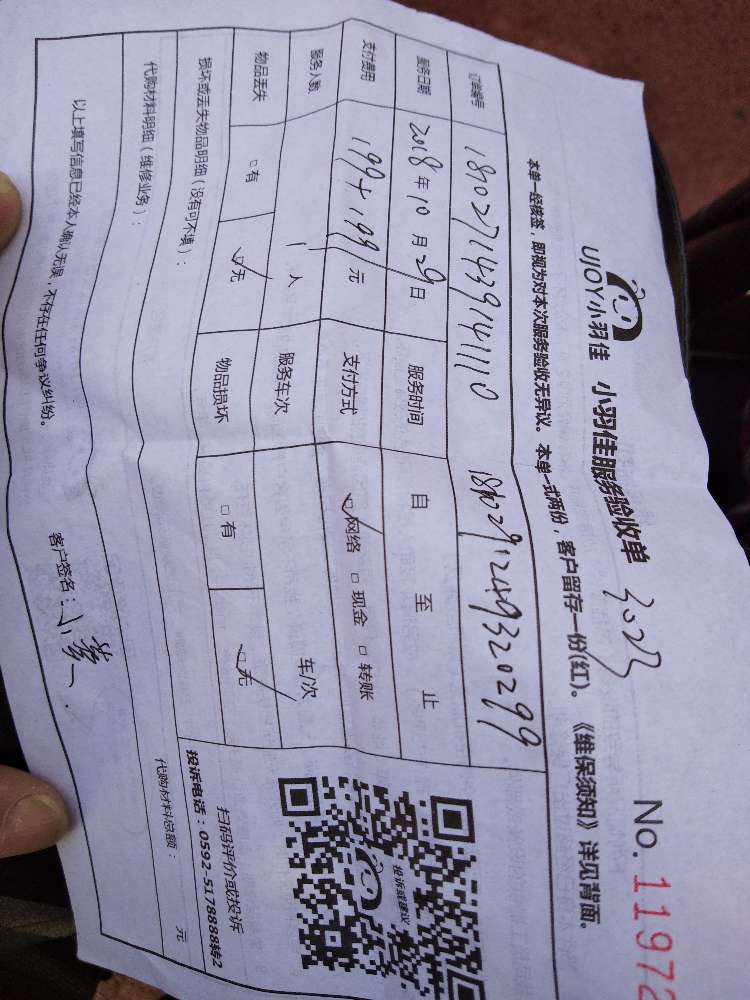 UJOY小羽佳 小羽佳服务验收单 3023 No. 11972
本单一经核签，即视为对本次服务验收无异议。本单一式两份，客户留存一份(红)。《维保须知》详见背面。
订单编号 181027143914110
服务日期 2018年10月29日 服务时间 自 至 止
支付费用 199+199 元 支付方式 网络 现金 转账
服务人数 1人 服务车次 车/次
物品丢失 有 无 物品损坏 有 无
损坏或丢失物品明细（没有可不填）：
代购材料明细（维修业务）： 代购材料总额： 元
以上填写信息已经本人确认无误，不存在任何争议纠纷。 客户签名：
投诉或建议
扫码评价或投诉
投诉电话：0592-5178888转2